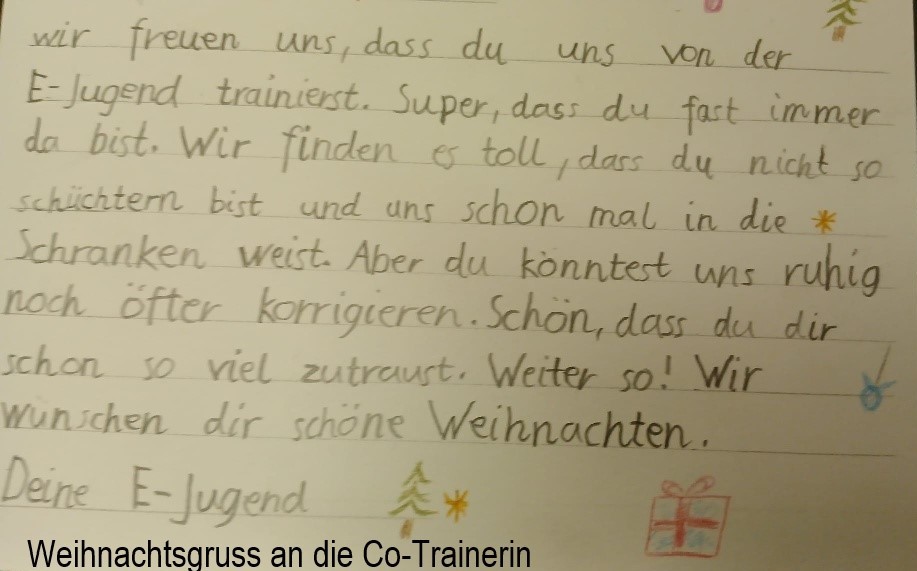 wir freuen uns, dass du uns von der
E-Jugend trainierst. Super, dass du fast immer
da bist. Wir finden es toll, dass du nicht so
schüchtern bist und uns schon mal in die
Schranken weist. Aber du könntest uns ruhig
noch öfter korrigieren. Schön, dass du dir
schon so viel zutraust. Weiter so! Wir
wünschen dir schöne Weihnachten.
Deine E-Jugend
Weihnachtsgruss an die Co-Trainerin